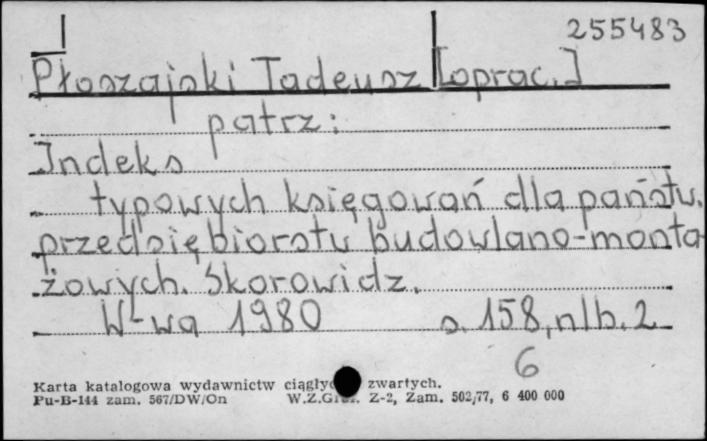 255483
Płoszajski Tadeusz [oprac.]
patrz:
Indeks
typowych księgowań dla państw.
przedsiębiorstw budowlano-monta-
żowych. Skorowidz.
W-wa 1980 s. 158, nlb. 2
6
Karta katalogowa wydawnictw zwartych.
Pu-B-144 zam. 567/DW/On W.Z.Graf. Z-2, Zam. 502/77, 6 400 000